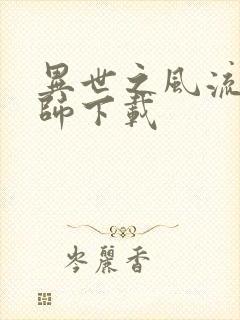 異世之風流
師下載
岑麗香